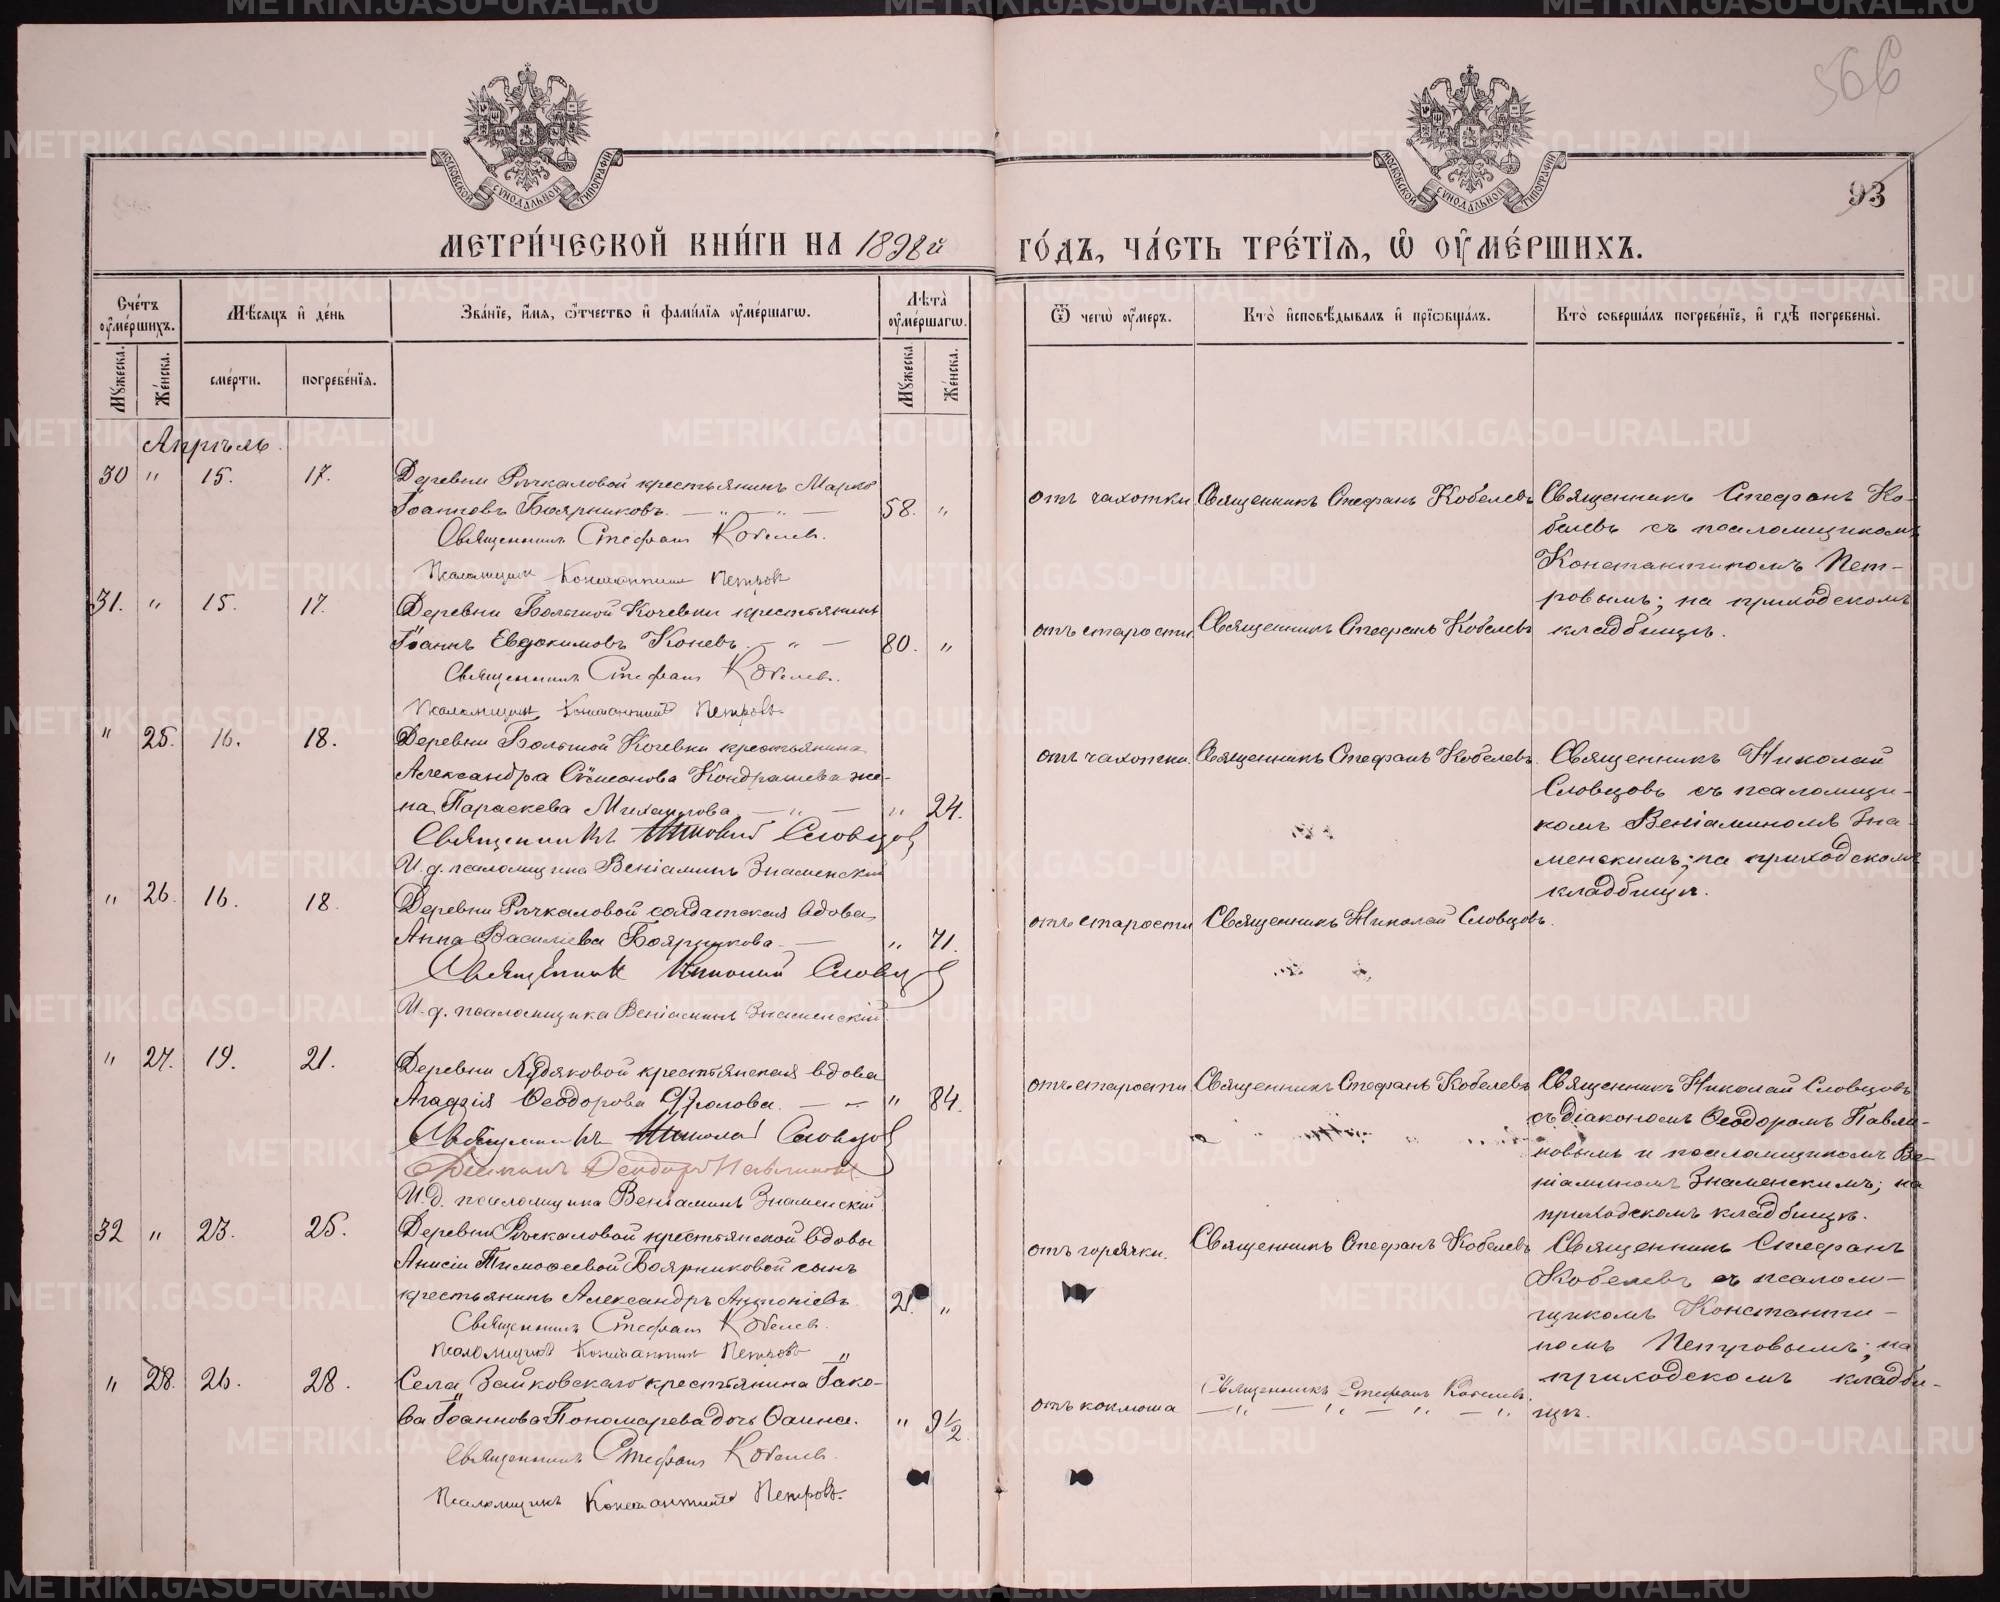 566
93
МОСКОВСКОЙ СѴНОДАЛЬНОЙ ТИПОГРАФІИ
МОСКОВСКОЙ СѴНОДАЛЬНОЙ ТИПОГРАФІИ
МЕТРИ́ЧЕСКОЙ КНИ́ГИ НА 1898й
ГО́ДЪ, ЧА́СТЬ ТРЕ́ТЇѦ, Ѡ҆ ОУ҆МЕ́РШИХЪ.
Сче́тъ оу҆ме́ршихъ.
Мѣ́сяцъ и҆ де́нь
Зва́нїе, и҆́мя, ѻ҆́тчество и҆ фами́лїя оу҆ме́ршагѡ.
Лѣ̑та оу҆ме́ршагѡ.
Ѿ чегѡ̀ оу҆́меръ.
Кто̀ и҆сповѣ́дывалъ и҆ прїѡбща́лъ.
Кто̀ соверша́лъ погребе́нїе, и҆ гдѣ̀ погребены̀.
Мꙋ́жеска.
Же́нска.
сме́рти.
погребе́нїя.
Мꙋ́жеска.
Же́нска.
Апрѣль.
30 " 15. 17.
Деревни Рѣчкаловой крестьянинъ Марко
Іоанновъ Боярниковъ. — " — " — 58. "
Священникъ Стефанъ Кобелевъ.
Псаломщикъ Константинъ Петровъ
отъ чахотки
Священникъ Стефанъ Кобелевъ
Священникъ Стефанъ Ко-
белевъ съ псаломщикомъ
Константиномъ Пет-
ровымъ; на приходскомъ
кладбищѣ.
31. " 15. 17.
Деревни Большой Кочевки крестьянинъ
Іоаннъ Евдокимовъ Коневъ. — " — 80. "
Священникъ Стефанъ Кобелевъ.
Псаломщикъ Константинъ Петровъ
отъ старости
Священникъ Стефанъ Кобелевъ
" 25. 16. 18.
Деревни Большой Кочевки крестьянина
Александра Сѵмеонова Кондрашева же-
на Параскева Михаилова — " — " 24.
Священникъ Николай Словцовъ
И. д. псаломщика Веніаминъ Знаменскій
отъ чахотки.
Священникъ Стефанъ Кобелевъ.
Священникъ Николай
Словцовъ съ псаломщи-
комъ Веніаминомъ Зна-
менскимъ; на приходскомъ
кладбищѣ.
" 26. 16. 18.
Деревни Рѣчкаловой солдатская вдова
Анна Васильева Боярникова. — " 71.
Священникъ Николай Словцовъ
И. д. псаломщика Веніаминъ Знаменскій.
отъ старости
Священникъ Николай Словцовъ.
" 27. 19. 21.
Деревни Худяковой крестьянская вдова
Агафія Ѳеодорова Фролова. — — " 84.
Священникъ Николай Словцовъ
Діаконъ Ѳеодоръ Павлиновъ
И. д. псаломщика Веніаминъ Знаменскій
отъ старости
Священникъ Стефанъ Кобелевъ
Священникъ Николай Словцовъ
съ діакономъ Ѳеодоромъ Павли-
новымъ и псаломщикомъ Ве-
ніаминомъ Знаменскимъ; на
приходскомъ кладбищѣ.
32 " 23. 25.
Деревни Рѣчкаловой крестьянской вдовы
Анисіи Тимоѳеевой Боярниковой сынъ
крестьянинъ Александръ Антоніевъ 21. "
Священникъ Стефанъ Кобелевъ.
Псаломщикъ Константинъ Петровъ "
отъ горячки.
Священникъ Стефанъ Кобелевъ
Священникъ Стефанъ
Кобелевъ съ псалом-
щикомъ Константи-
номъ Петровымъ; на
приходскомъ кладби-
щѣ.
" 28. 26. 28.
Села Зайковскаго крестьянина Іако-
ва Іоаннова Пономарева дочь Фаина. " 9 1/2
Священникъ Стефанъ Кобелевъ.
Псаломщикъ Константинъ Петровъ.
отъ коклюша
Священникъ Стефанъ Кобелевъ.
— " — " — " — "